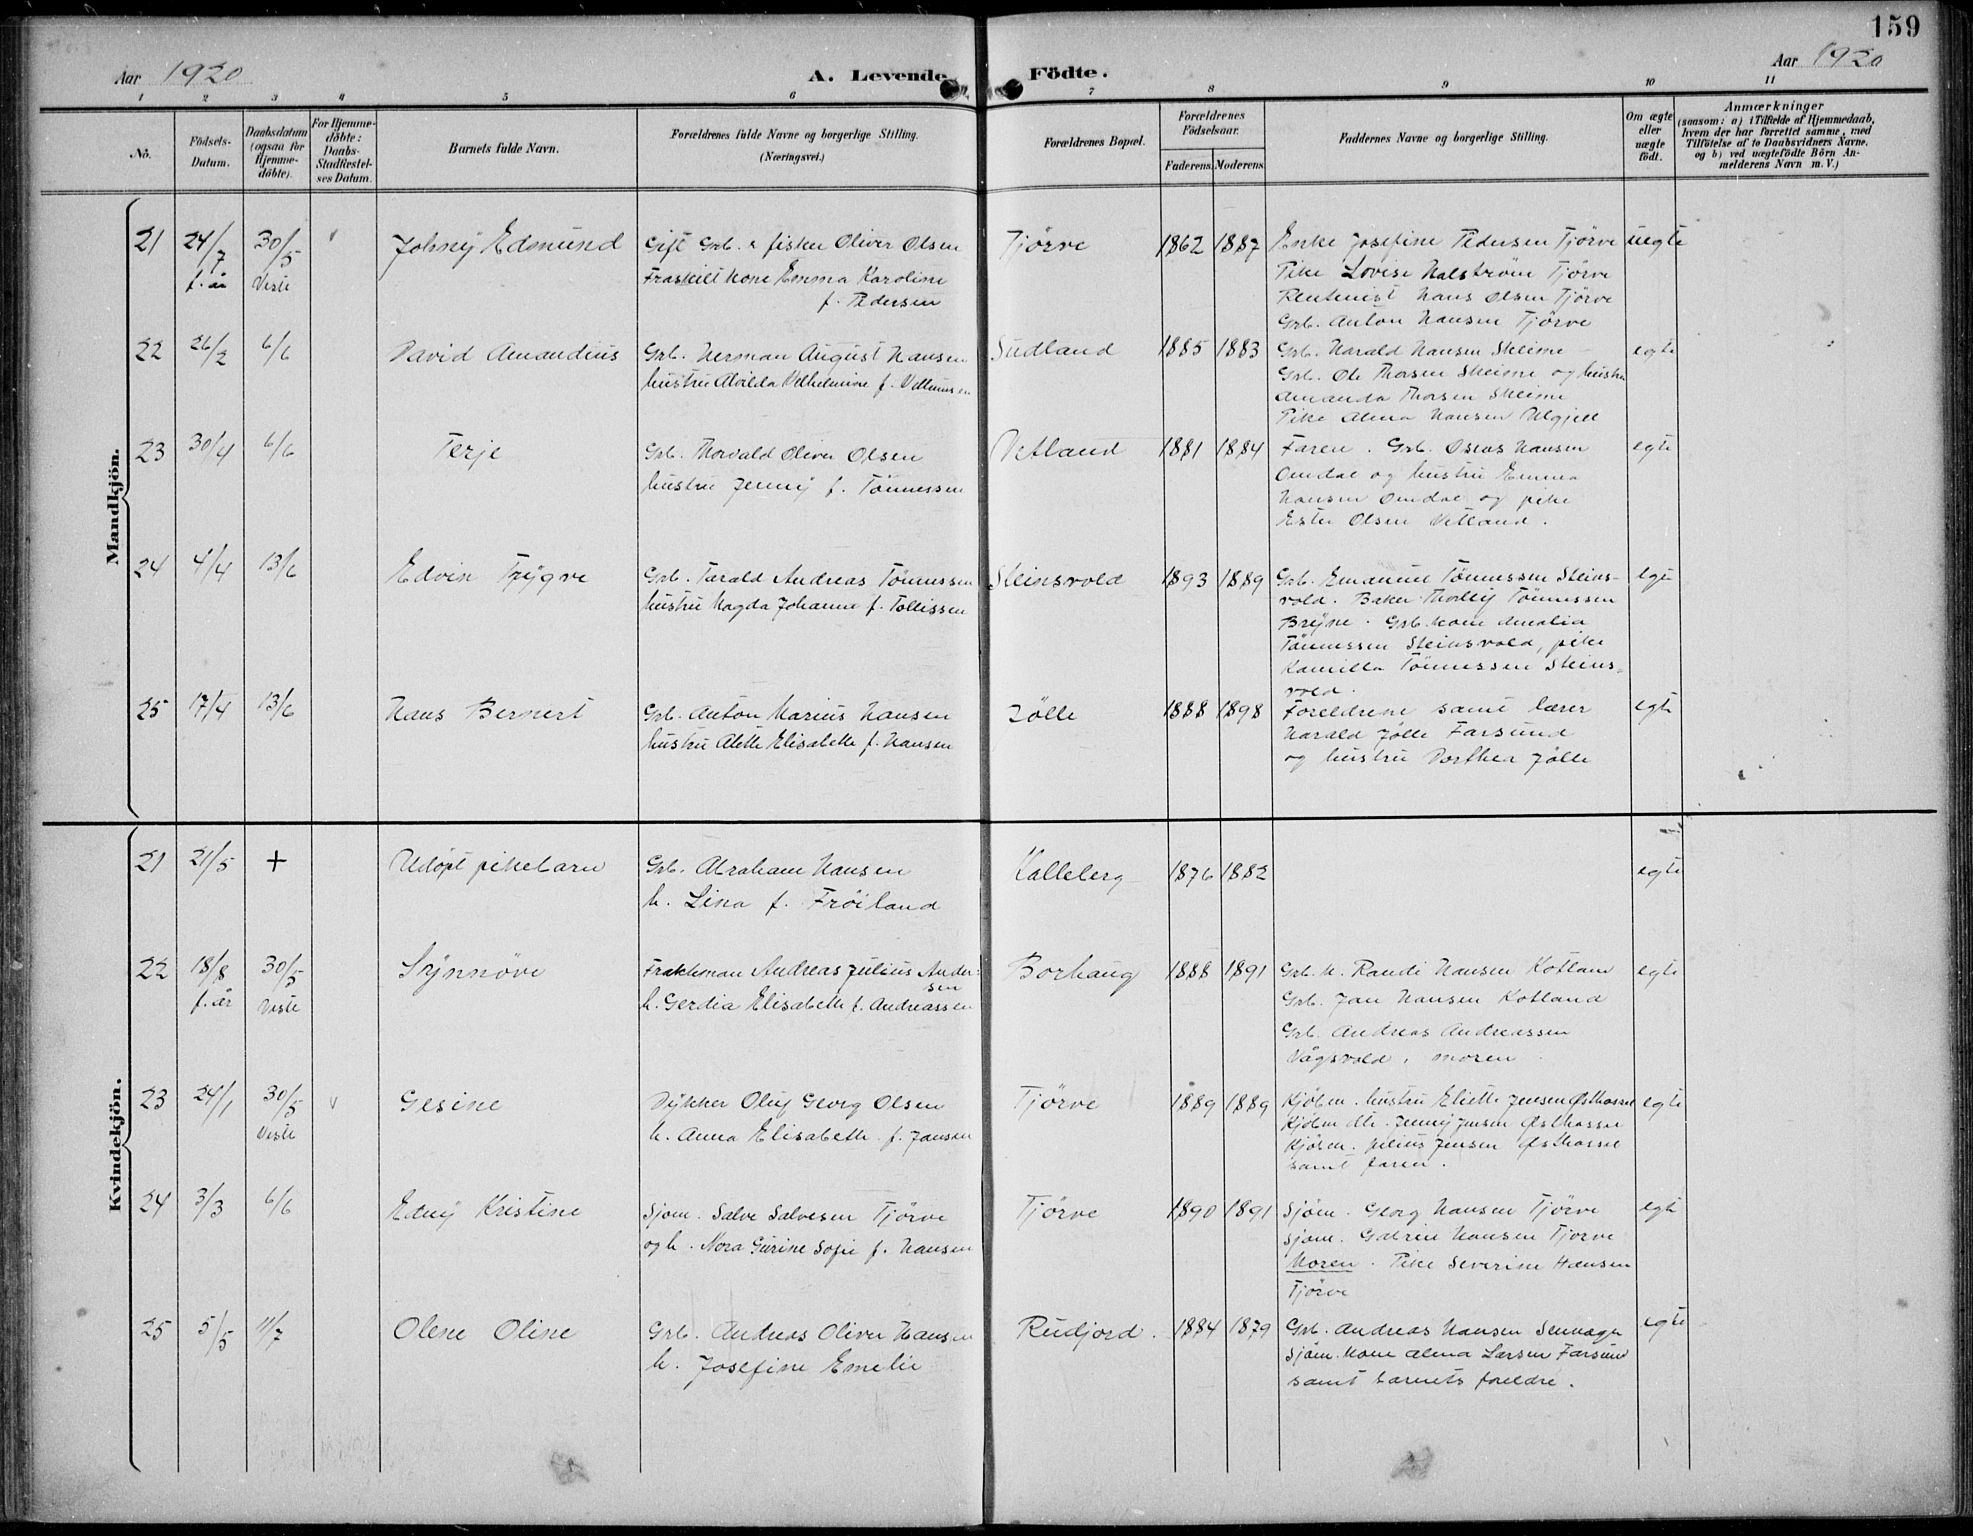 159
Aar 1920
A. Levende
Födte.
Aar 1920
1 2 3 4 5 6 7 8 9 10 11
No.
Födsels-
Datum.
Daabsdatum
(ogsaa for
Hjemme-
döbte).
For Hjemme-
döbte:
Daabs-
Stadfæstel-
ses Datum.
Barnets fulde Navn.
Forældrenes fulde Navne og borgerlige Stilling.
(Næringsvei.)
Forældrenes Bopæl.
Forældrenes
Födselsaar.
Faderens. Moderens.
Faddernes Navne og borgerlige Stilling.
Om ægte
eller
uægte
födt.
Anmærkninger
(saasom: a) i Tilfælde af Hjemmedaab,
hvem der har forrettet samme, med
Tilföielse af to Daabsvidners Navne,
og b) ved uægtefödte Börn An-
melderens Navn m. V.)
Mandkjön.
21 24/7 30/5 Johnÿ Edmund Gift Grb. & fisker Oliver Olsen Tjörve 1862 1887 Enke Josefine Pedersen Tjörve uegte
f. år Vestr Fraskilt kone Emma Karoline Pike Lovise Halström Tjörve
f. Pedersen Rentenist Hans Olsen Tjörve
Grb. Anton Hansen Tjörve
22 26/2 6/6 David Amandius Grb. Herman August Hansen Sudland 1885 1883 Grb. Harald Hansen Skeime egte
hustru Alvilda Vilhelmine f. Grb. Ole Thorsen Skeime og hustru
Amanda Thorsen Skeime
Pike Alma Hansen Ulgjell
23 30/4 6/6 Terje Grb. Thorvald Oliver Olsen Vetland 1881 1884 Faren. Grb. Oskar Hansen egte
hustru Jennÿ f. Tönnessen Omdal og hustru Emma
Hansen Omdal og pike
Ester Olsen Vetland.
24 4/4 13/6 Edvin Trÿgve Grb. Tarald Andreas Tönnessen Steinsvold 1893 1889 Grb. Emanuel Tönnessen Steins- egte
hustru Magda Johanne f. Tollissen vold. Baker Tönnessen
Brÿne. Grb. kone Amalia
Tönnessen Steinsvold, pike
Kamilla Tönnessen Steins-
vold.
25 17/4 13/6 Hans Bernert Grb. Anton Marius Hansen Jölle 1888 1898 Foreldrene samt lærer egte
hustru Alette Elisabeth f. Hansen Harald Jölle Farsund
og hustru Dorthea Jölle
Kvindekjön.
21 21/5 + Udöpt pikebarn Grb. Abraham Hansen Kalleberg 1876 1882 egte
h. Lina f. Fröiland
22 18/8 30/5 Sÿnnöve Frakteman Andreas Julius Ander- Borhaug 1888 1891 Grb. k. Randi Hansen Kotland egte
sen
f. år Vestr h. Gerdia Elisabeth f. Andreassen Grb. Jan Hansen Kotland
Grb. Andreas Andreassen
Vågsvold, moren
23 24/1 30/5 Gesine Dÿkker Oluf Georg Olsen Tjörve 1889 1889 Kjöbm. hustru Eliette Jensen Østhassel egte
Vestr h. Anna Elisabeth f. Jansen Kjöbm. dtr. Jennÿ Jensen Østhassel
Kjöbm. Julius Jensen Østhassel
samt faren.
24 3/3 6/6 Ednÿ Kristine Sjøm. Salve Salvesen Tjörve Tjörve 1890 1891 Sjøm. Georg Hansen Tjörve egte
og h. Nora Gurine Sofie f. Hansen Sjøm. Gabriel Hansen Tjörve
Moren. Pike Severine Hansen
Tjörve
25 5/5 11/7 Olene Oline Grb. Andreas Oliver Hansen Rudjord. 1884 1879 Grb. Andreas Hansen egte
h. Josefine Emelie Sjøm. kone Alma Larsen Farsund
samt barnets foreldre.